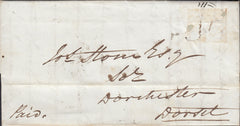 Jos. Stone Esq
Solr
Dorchester
Dorset
Paid.